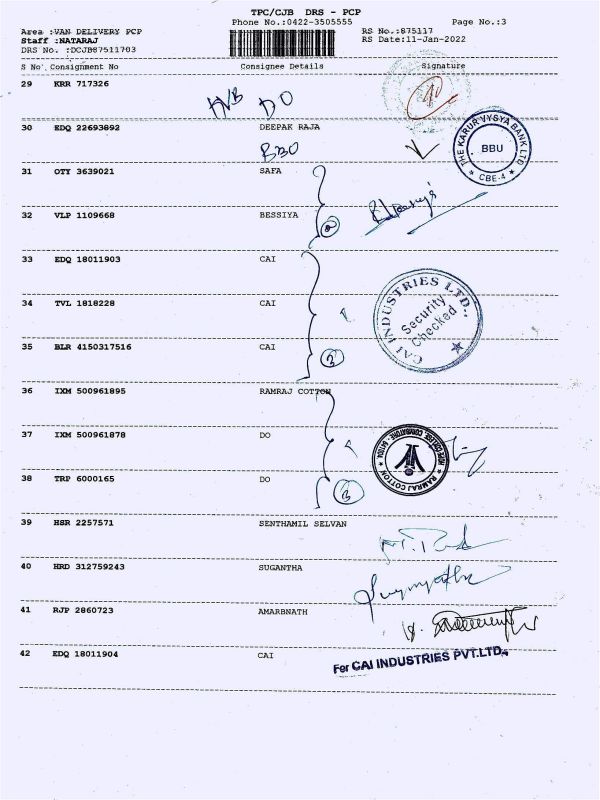 TPC/CJB DRS - PCP
Phone No.:0422-3505555 Page No.:3
Area :VAN DELIVERY PCP RS No.:875117
Staff :NATARAJ RS Date:11-Jan-2022
DRS No. :DCJB87511703
S No Consignment No Consignee Details Signature
29 KRR 717326
DO
30 EDQ 22693892 DEEPAK RAJA
BBO
THE KARUR VYSYA BANK LTD
BBU
CBE-4
31 OTY 3639021 SAFA
32 VLP 1109668 BESSIYA
2
33 EDQ 18011903 CAI
34 TVL 1818228 CAI
CAI INDUSTRIES LTD.,
Security
Checked
35 BLR 4150317516 CAI
3
36 IXM 500961895 RAMRAJ COTTON
37 IXM 500961878 DO
RAMRAJ COTTON
38 TRP 6000165 DO
3
39 HSR 2257571 SENTHAMIL SELVAN
40 HRD 312759243 SUGANTHA
41 RJP 2860723 AMARBNATH
42 EDQ 18011904 CAI
For CAI INDUSTRIES PVT.LTD.,